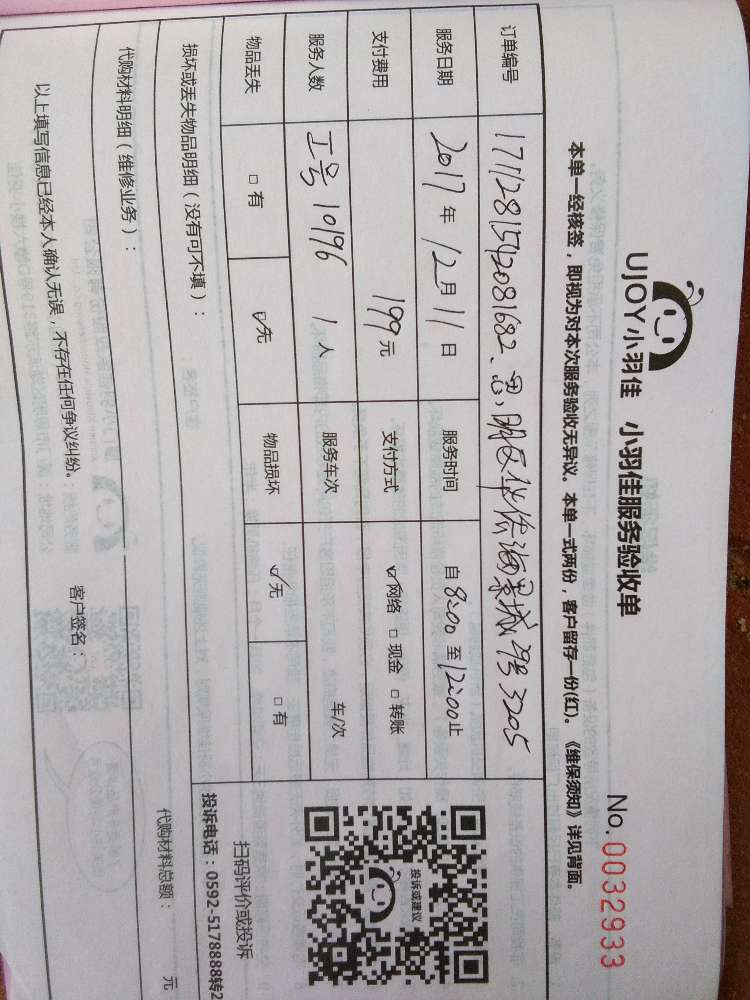 UJOY小羽佳 小羽佳服务验收单
No.0032933
本单一经核签，即视为对本次服务验收无异议。本单一式两份，客户留存一份(红)。《维保须知》详见背面。
订单编号 1711281542081682、思明区 城 3205
服务日期 2017年12月11日 服务时间 自8:00至12:00止
支付费用 199元 支付方式 ☑网络 □现金 □转账
服务人数 工号10196 1人 服务车次 车/次
物品丢失 □有 ☑无 物品损坏 ☑无 □有
投诉或建议
扫码评价或投诉
投诉电话：0592-5178888转2
损坏或丢失物品明细（没有可不填）：
代购材料明细（维修业务）： 代购材料总额： 元
以上填写信息已经本人确认无误，不存在任何争议纠纷。 客户签名：